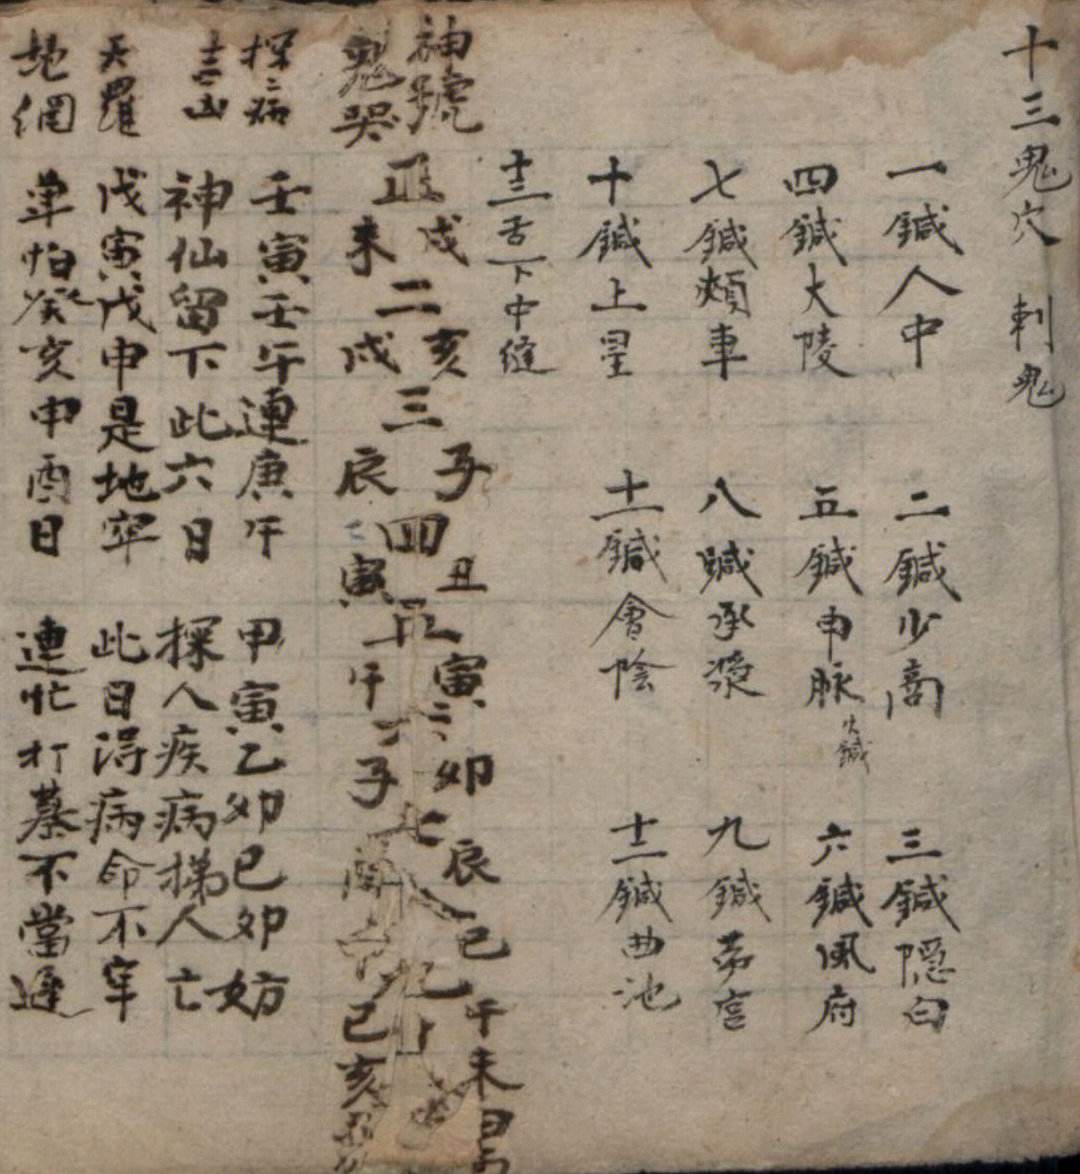 十三鬼穴 刺鬼
一鍼人中 二鍼少商 三鍼隱白
四鍼大陵 五鍼申脉火鍼 六鍼風府
七鍼頰車 八鍼承漿 九鍼勞宮
十鍼上星 十一鍼會陰 十二鍼曲池
十三舌下中縫
神號 戌 亥 子 丑 寅 卯 辰 巳 午 未
正 二 三 四 五 六 七 八 九 十
鬼哭 未 戌 辰 寅 午 子 酉 申 巳 亥
探病 壬寅壬午連庚午 甲寅乙卯己卯妨
吉凶 神仙留下此六日 探人疾病掦人亡
天羅 戊寅戊申是地牢 此日淂病命不牢
地網 單怕癸亥申酉日 連忙打墓不當遲